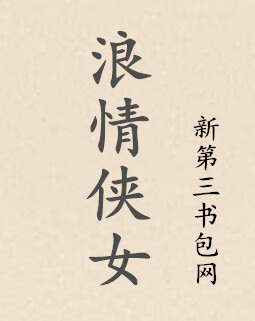 浪情侠女
新第三书包网